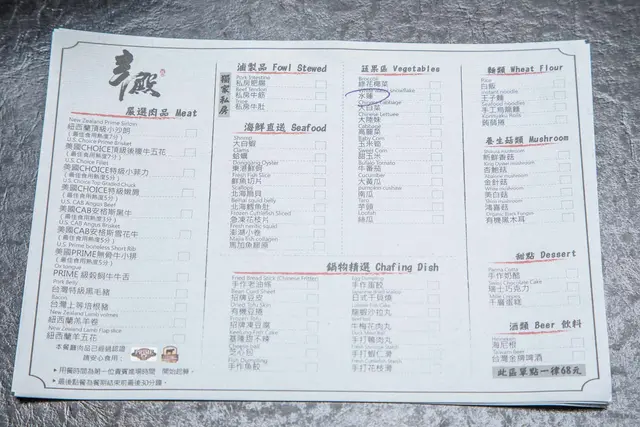 嚴選肉品 Meat
New Zealand Prime Sirloin
紐西蘭頂級小沙朗
(最佳食用熟度7分)
U.S. Choice Prime Brisket
美國CHOICE頂級後腰牛五花
U.S. Choice Fillet
美國CHOICE特級小菲力
(最佳食用熟度5分)
美國CHOICE特級嫩肩
(最佳食用熟度5分)
U.S. CAB Angus Beef
美國CAB安格斯黑牛
(最佳食用熟度3分)
U.S. CAB Angus Brisket
美國CAB安格斯雪花牛
(最佳食用熟度5分)
U.S. Prime boneless Short Rib
美國PRIME無骨牛小排
(最佳食用熟度5分)
Ox tongue
PRIME 級穀飼牛牛舌
Pork Belly
台灣特級黑毛豬
Bacon
台灣上等培根豬
New Zealand Lamb volumes
紐西蘭羔羊卷
New Zealand Lamb Flap slice
紐西蘭羊五花
本餐廳肉品已經過認證
請安心食用:
▸用餐時間為第一位貴賓進場時間 開始起算。
▸最後點餐為餐期結束前最後30分鐘。
獨家私房
滷製品 Fowl Stewed
Pork Intestine
私房肥腸
Beef Tendon
私房牛筋
Tripe
私房牛肚
海鮮直送 Seafood
Shrimp
大白蝦
Clams
蛤蠣
Donggang Oyster
東港鮮蚵
Fresh Fish Slice
鮮魚切片
Scallops
北海扇貝
北海鱈魚肚
Frozen Cuttlefish Sliced
急凍花枝片
澎湖小卷
馬加魚膠原
蔬果區 Vegetables
Broccoli
綠花椰菜
水蓮
Chinese Cabbage
大白菜
Chinese Lettuce
大陸妹
Cabbage
高麗菜
Baby Corn
玉米筍
Sweet Corn
甜玉米
牛番茄
Cucumber
大黃瓜
南瓜
Taro
芋頭
Loofah
絲瓜
鍋物精選 Chafing Dish
手作老油條
招牌豆皮
有機豆捲
招牌凍豆腐
基隆甜不辣
芝心包
手作魚餃
Egg Dumpling
手作蛋餃
日式干貝燒
龍蝦沙拉丸
牛梅花肉丸
手打鴨肉丸
手打蝦仁滑
手打花枝滑
麵類 Wheat Flour
Rice
白飯
Instant noodle
王子麵
Seafood noodles
手工烏龍麵
蒟蒻捲
養生菇類 Mushroom
新鮮香菇
King Oyster mushroom
杏鮑菇
金針菇
美白菇
鴻喜菇
有機黑木耳
甜點 Dessert
手作奶酪
瑞士巧克力
千層蛋糕
酒類 Beer 飲料
Heineken
海尼根
Taiwan Beer
台灣金牌啤酒
此區單點一律68元